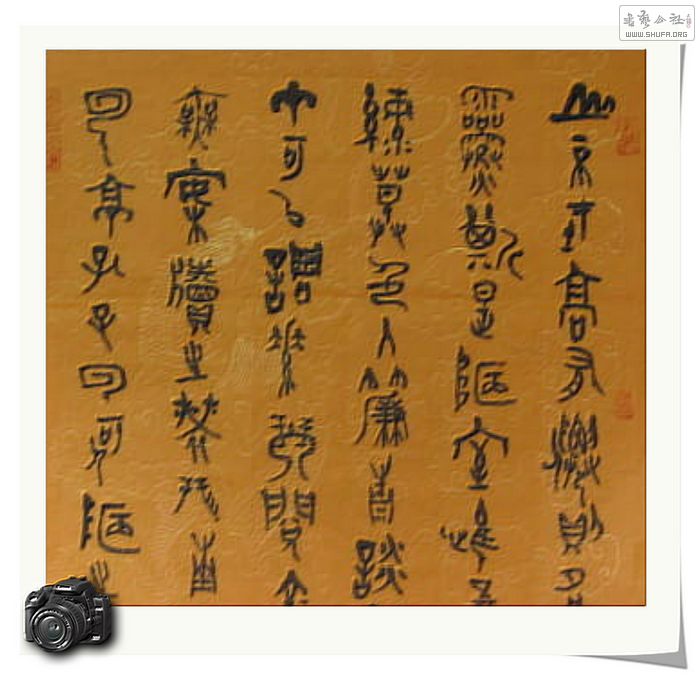 書藝公社
WWW.SHUFA.ORG
山不在高有僊則名
靈斯是陋室惟吾
綠草色入簾青談
可以調素琴閱金
無案牘之勞形南
云亭孔子曰何陋之